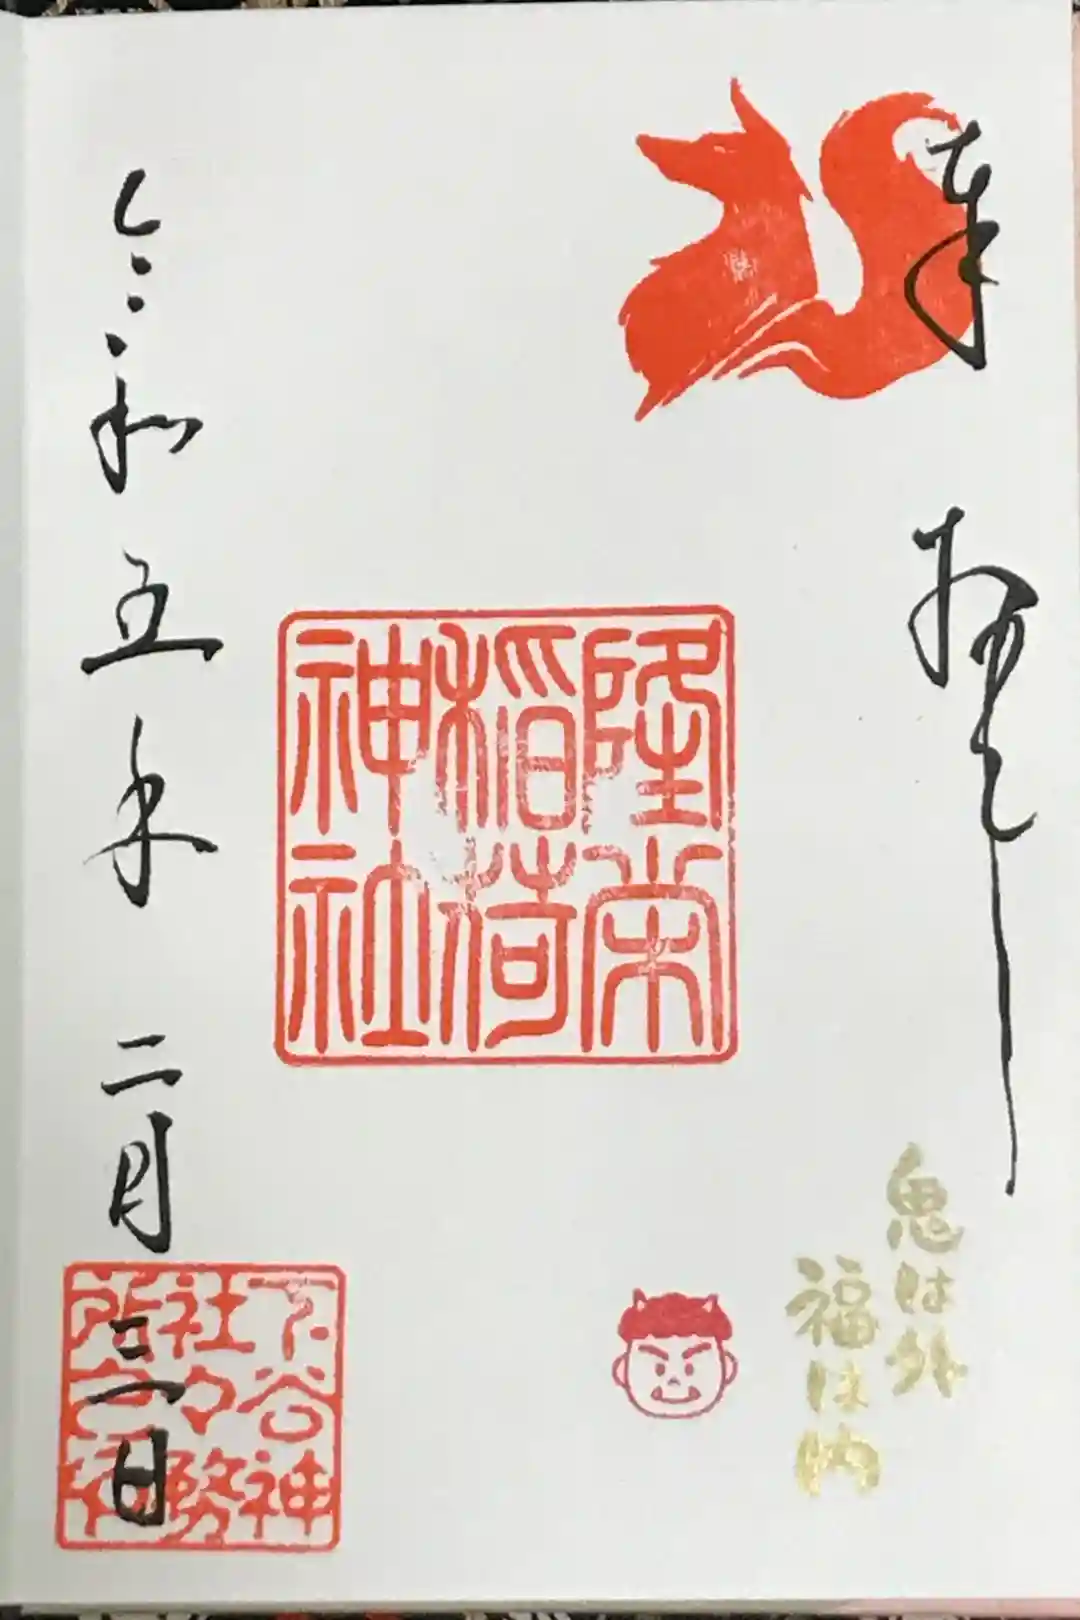 奉拝
隆栄
稲荷
神社
鬼は外
福は内
令和五年二月三日
下谷神
社々務
所之印